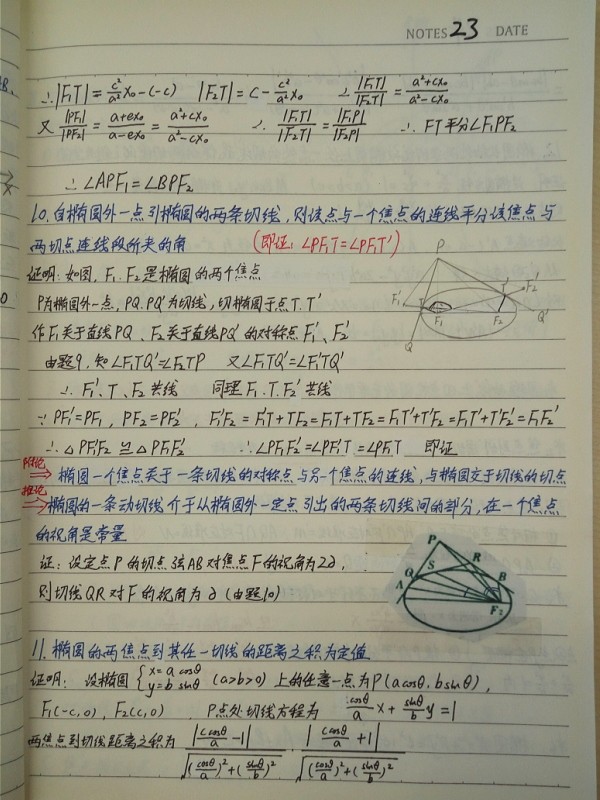 NOTES 23 DATE
∴|F₁T|=c²/a² x₀-(-c) |F₂T|=c-c²/a² x₀ ∴|F₁T|/|F₂T|=(a²+cx₀)/(a²-cx₀)
又|PF₁|/|PF₂|=(a+ex₀)/(a-ex₀)=(a²+cx₀)/(a²-cx₀) ∴|F₁T|/|F₂T|=|F₁P|/|F₂P| ∴FT平分∠F₁PF₂
∴∠APF₁=∠BPF₂
10.自椭圆外一点引椭圆的两条切线,则该点与一个焦点的连线平分该焦点与
两切点连线段所夹的角 (即证:∠PF₁T=∠PF₁T′)
证明:如图,F₁.F₂是椭圆的两个焦点
P为椭圆外一点,PQ.PQ′为切线,切椭圆于点T.T′
作F₁关于直线PQ、F₂关于直线PQ′的对称点F₁′、F₂′
由题9,知∠F₁TQ′=∠F₂TP 又∠F₁TQ′=∠F₁′TQ′
∴F₁′、T、F₂共线 同理F₁.T.F₂′共线
∵PF₁′=PF₁,PF₂=PF₂′,F₁′F₂=F₁′T+TF₂=F₁T+TF₂=F₁T′+T′F₂=F₁T′+T′F₂′=F₁F₂′
∴△PF₁′F₂≌△PF₁F₂′ ∴∠PF₁F₂′=∠PF₁′T=∠PF₁T 即证
P
F₁′
T
F₁
F₂
T′
F₂′
Q
Q′
⇒椭圆一个焦点关于一条切线的对称点与另一个焦点的连线,与椭圆交于切线的切点
推论
⇒椭圆的一条动切线介于从椭圆外一定点引出的两条切线间的部分,在一个焦点
的视角是常量
证:设定点P的切点弦AB对焦点F的视角为2∂,
则切线QR对F的视角为∂(由题10)
P
Q
S
R
A
B
F₂
11.椭圆的两焦点到其任一切线的距离之积为定值
证明:设椭圆{x=a cosθ y=b sinθ (a>b>0)上的任意一点为P(acosθ,bsinθ),
F₁(-c,0),F₂(c,0) P点处切线方程为 cosθ/a x+sinθ/b y=1
两焦点到切线距离之积为 |c cosθ/a -1|/√((cosθ/a)²+(sinθ/b)²) · |c cosθ/a +1|/√((cosθ/a)²+(sinθ/b)²)